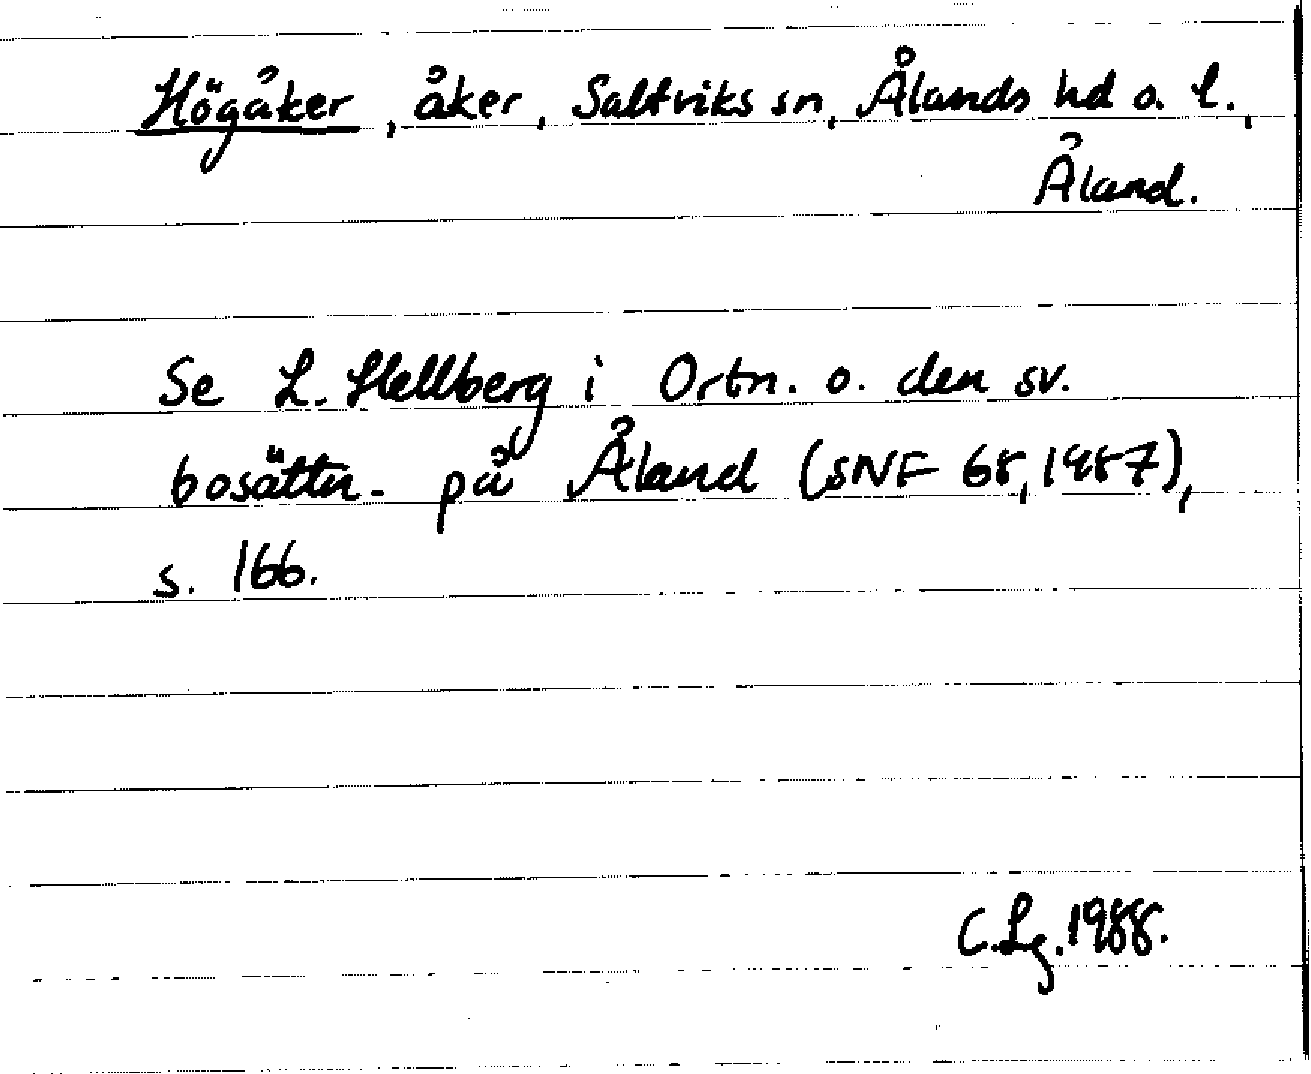 Högåker, åker, Saltviks sn, Ålands hd o. l.,
Åland.
Se L. Hellberg i Ortn. o. den sv.
bosättn. på Åland (SNF 68, 1987),
s. 166.
C. Lg. 1988.